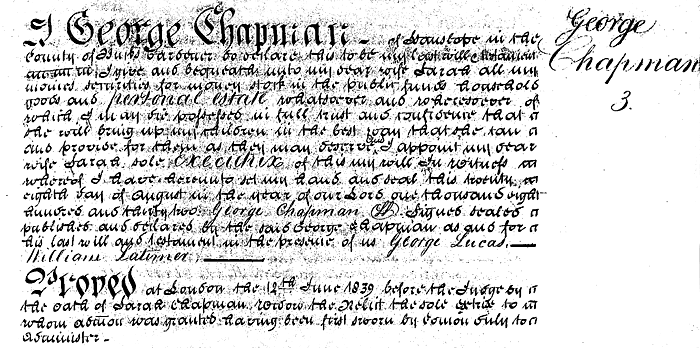 I George Chapman of Hanslope in the
County of Bucks Gardener do declare this to be my last will & testament
I give and bequeath unto my dear wife Sarah all my
monies securities for money stock in the public funds household
goods and personal estate whatsoever and wheresoever of
which I may die possessed in full trust and confidence that
she will bring up my children in the best way that she can
and provide for them as they may deserve and I appoint my dear
wife Sarah sole executrix of this my will In witness
whereof I have hereunto set my hand and seal this twenty
eighth day of August in the year of our Lord one thousand eight
hundred and thirty two George Chapman Signed sealed
published and declared by the said George Chapman as and for
his last will and testament in the presence of us George Lucas
William Latimer
Proved at London the 12th June 1839 before the Judge by
the oath of Sarah Chapman Widow the Relict the sole extrix to
whom admon was granted having been first sworn by comon duly to
Administer
George
Chapman
3.